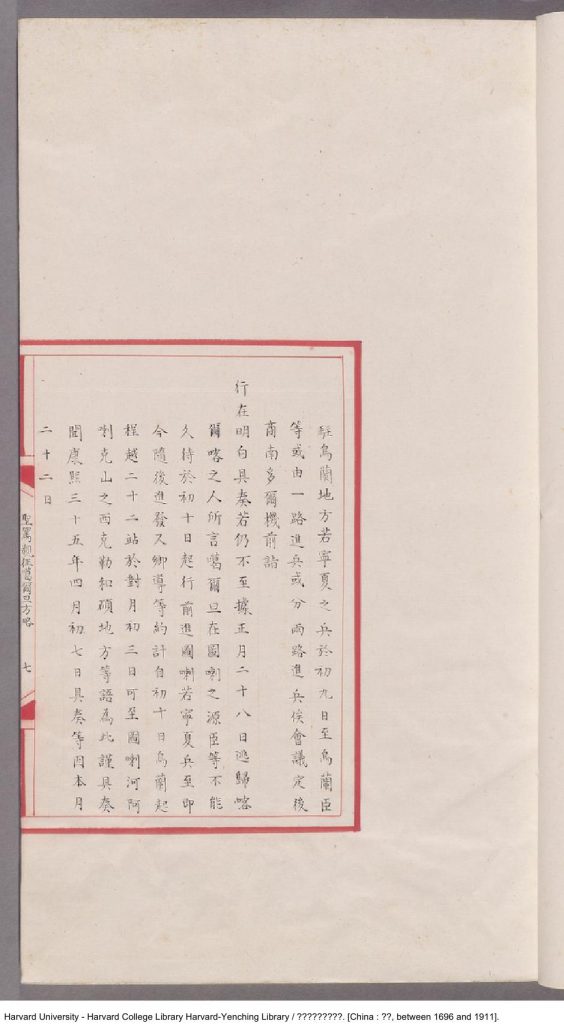 駐烏蘭地方若寧夏之兵於初九日至烏蘭臣
等或由一路進兵或分兩路進兵俟會議定後
商南多爾機前請
行在明白具奏若仍不至據正月二十八日逃歸喀
爾喀之人所言噶爾旦在圖喇之源臣等不能
久待於初十日起行前進圖喇若寧夏兵至即
令隨後進發又鄉導等約計自初十日烏蘭起
程越二十二站於對月初三日可至圖喇河阿
喇克山之西克勒和碩地方等語為此謹具奏
聞康熙三十五年四月初七日具奏等因本月
二十二日
聖駕親征噶爾旦方略
七
Harvard University - Harvard College Library Harvard-Yenching Library / ?????????. [China : ??, between 1696 and 1911].